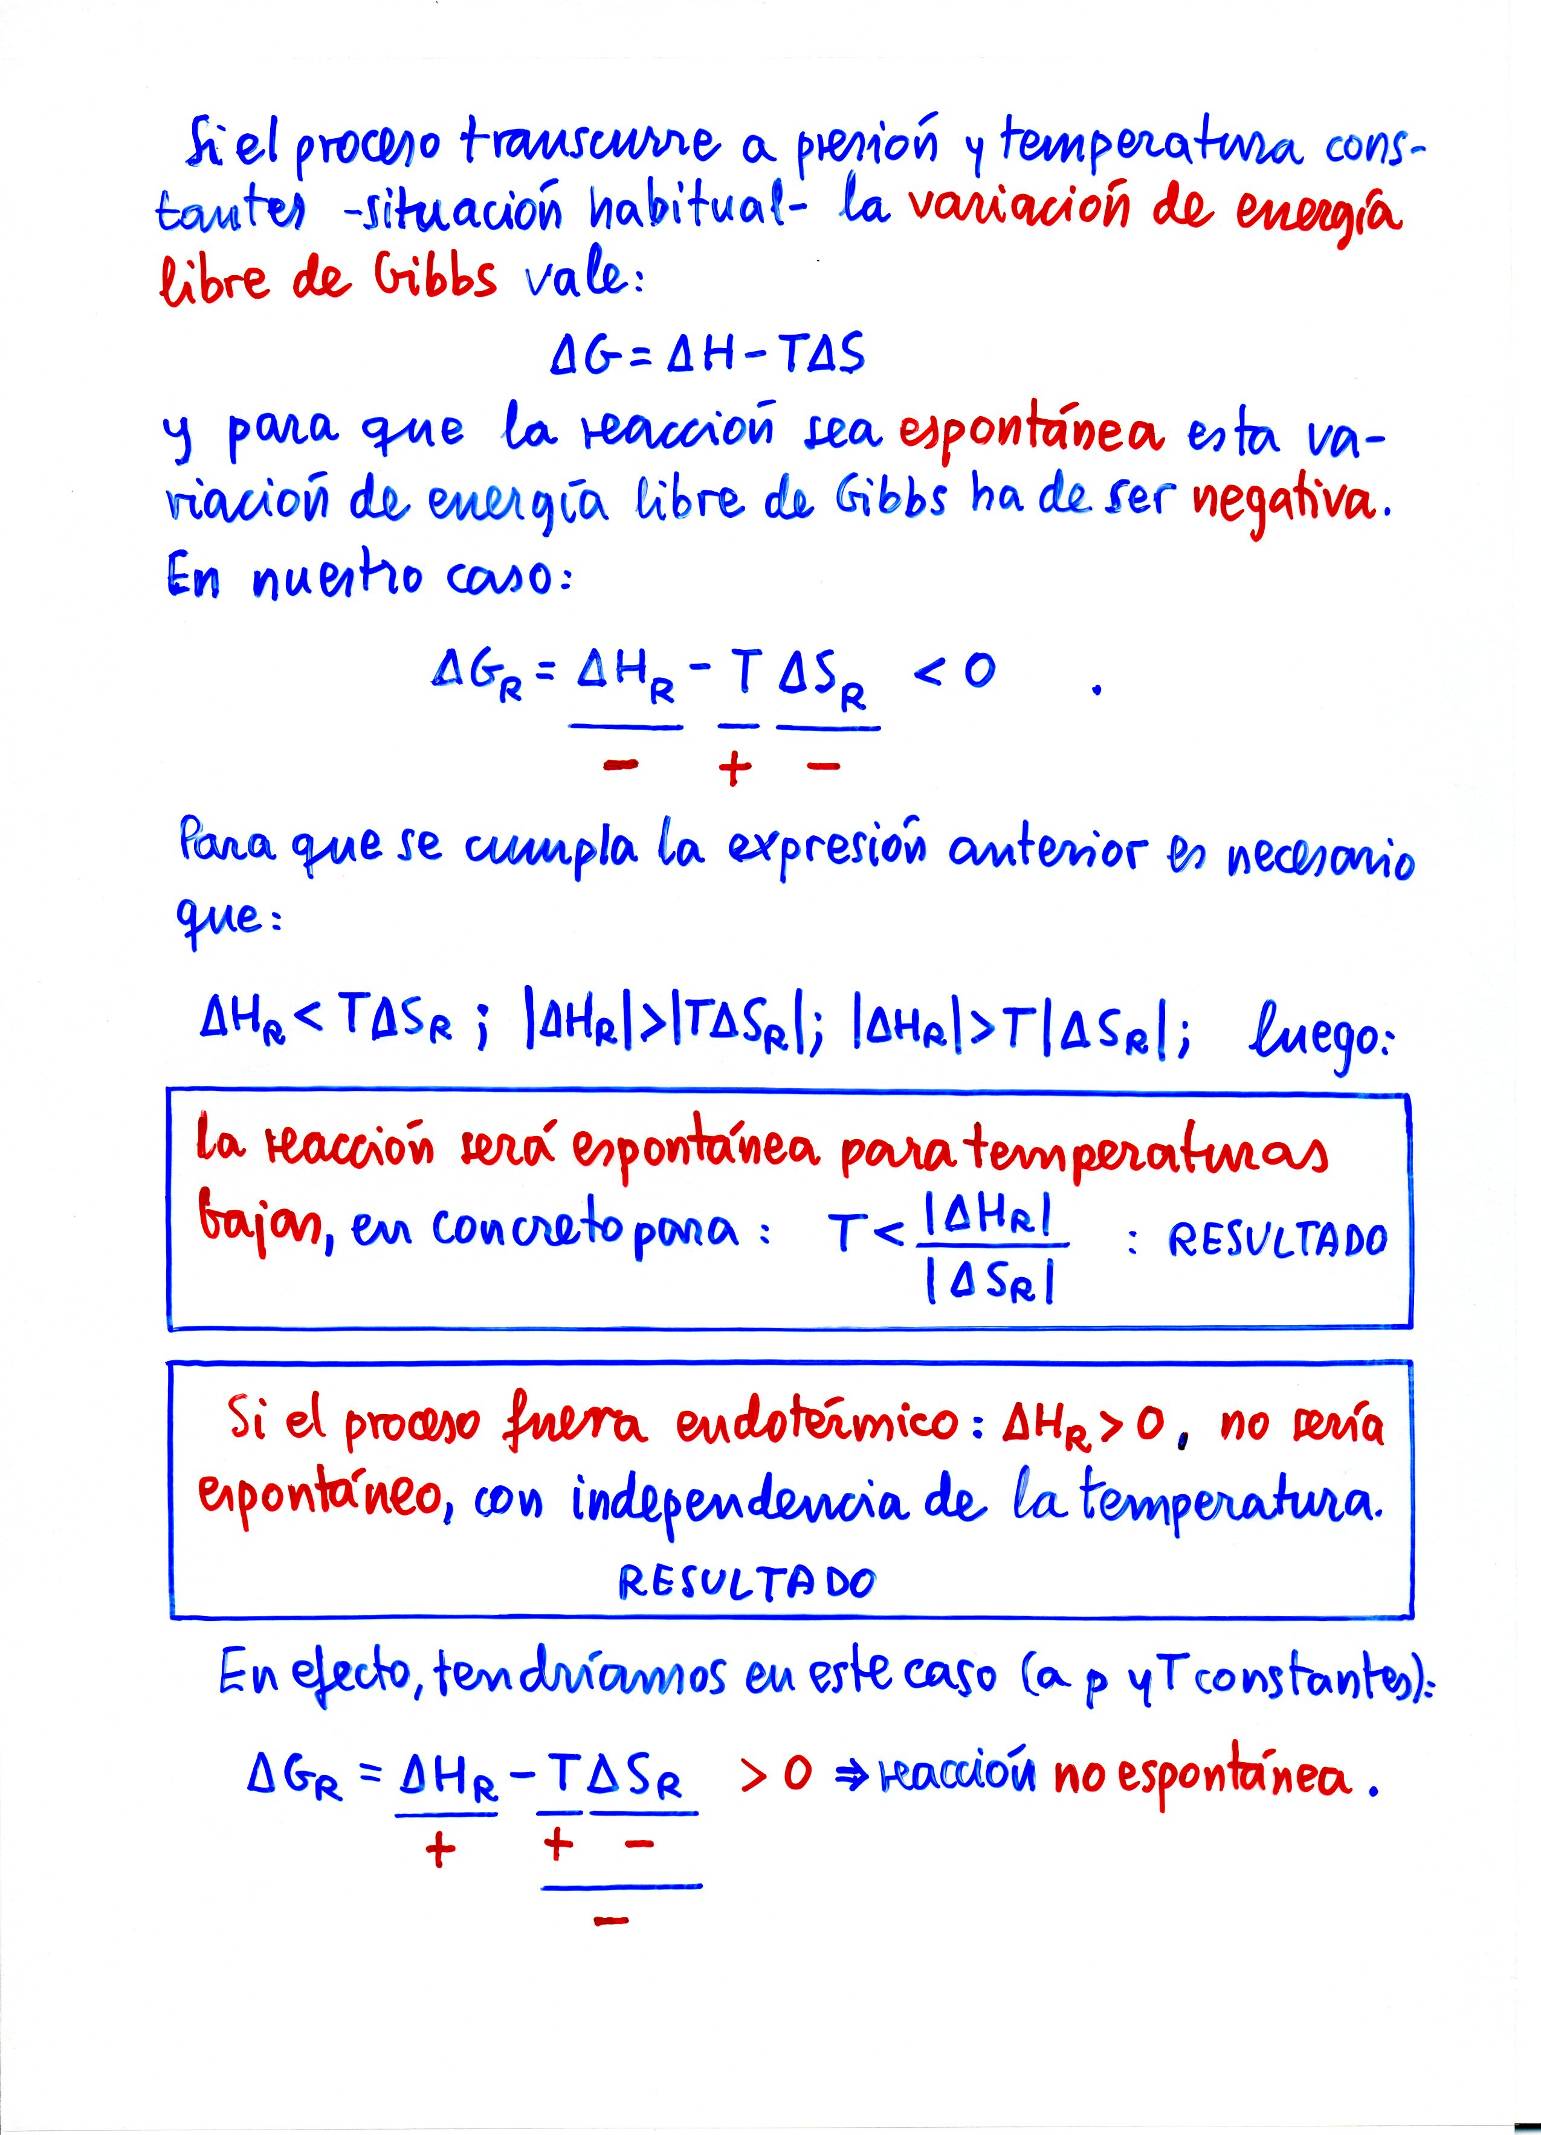 Si el proceso transcurre a presión y temperatura cons-
tantes -situación habitual- la variación de energía
libre de Gibbs vale:
ΔG = ΔH - TΔS
y para que la reacción sea espontánea esta va-
riación de energía libre de Gibbs ha de ser negativa.
En nuestro caso:
ΔG_R = ΔH_R - T ΔS_R < 0 .
- + -
Para que se cumpla la expresión anterior es necesario
que:
ΔH_R < TΔS_R ; |ΔH_R|>|TΔS_R|; |ΔH_R|>T|ΔS_R|; luego:
La reacción será espontánea para temperaturas
bajas, en concreto para: T < |ΔH_R| / |ΔS_R| : RESULTADO
Si el proceso fuera endotérmico: ΔH_R > 0, no sería
espontáneo, con independencia de la temperatura.
RESULTADO
En efecto, tendríamos en este caso (a p y T constantes):
ΔG_R = ΔH_R - TΔS_R > 0 ⇒ reacción no espontánea.
+ + -
-